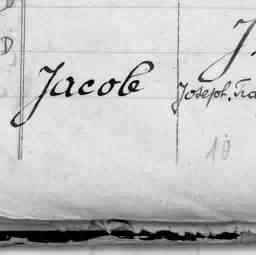 Jacob
Joseph, Fra
10